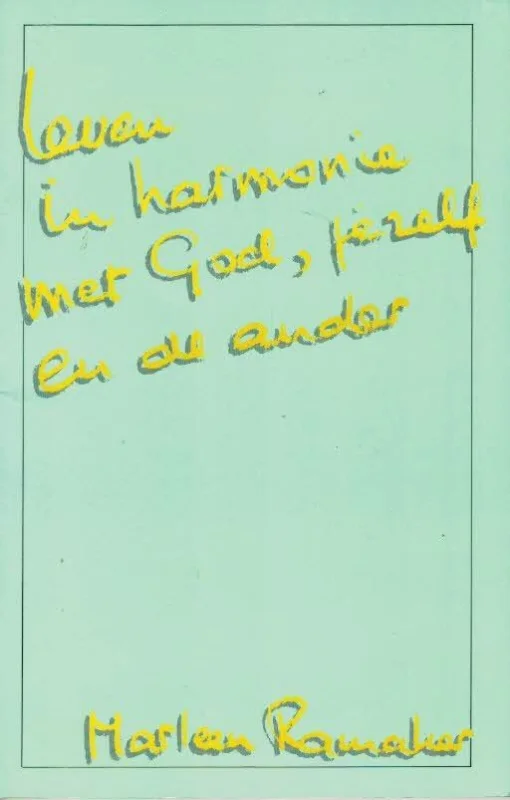 Leven
in harmonie
met God, jezelf
en de ander
Marleen Ramaker